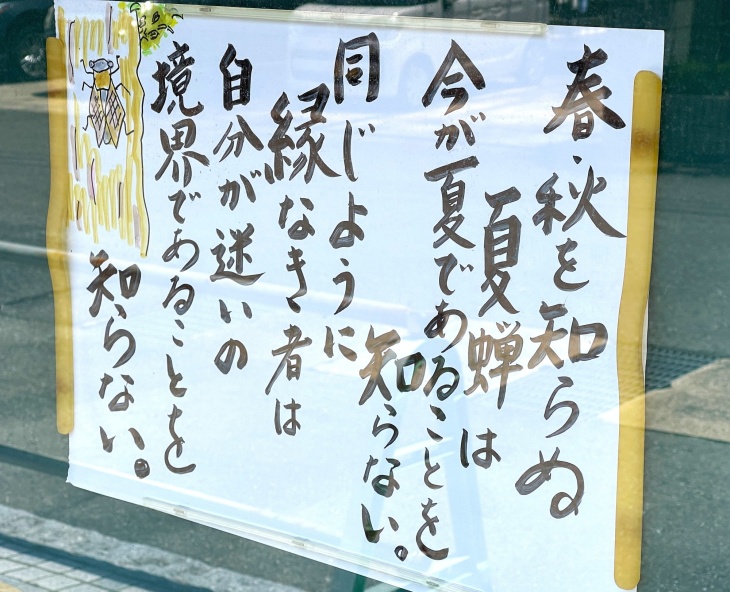 春・秋を知らぬ
夏蝉は
今が夏であることを
知らない。
同じように
縁なき者は
自分が迷いの
境界であることを
知らない。